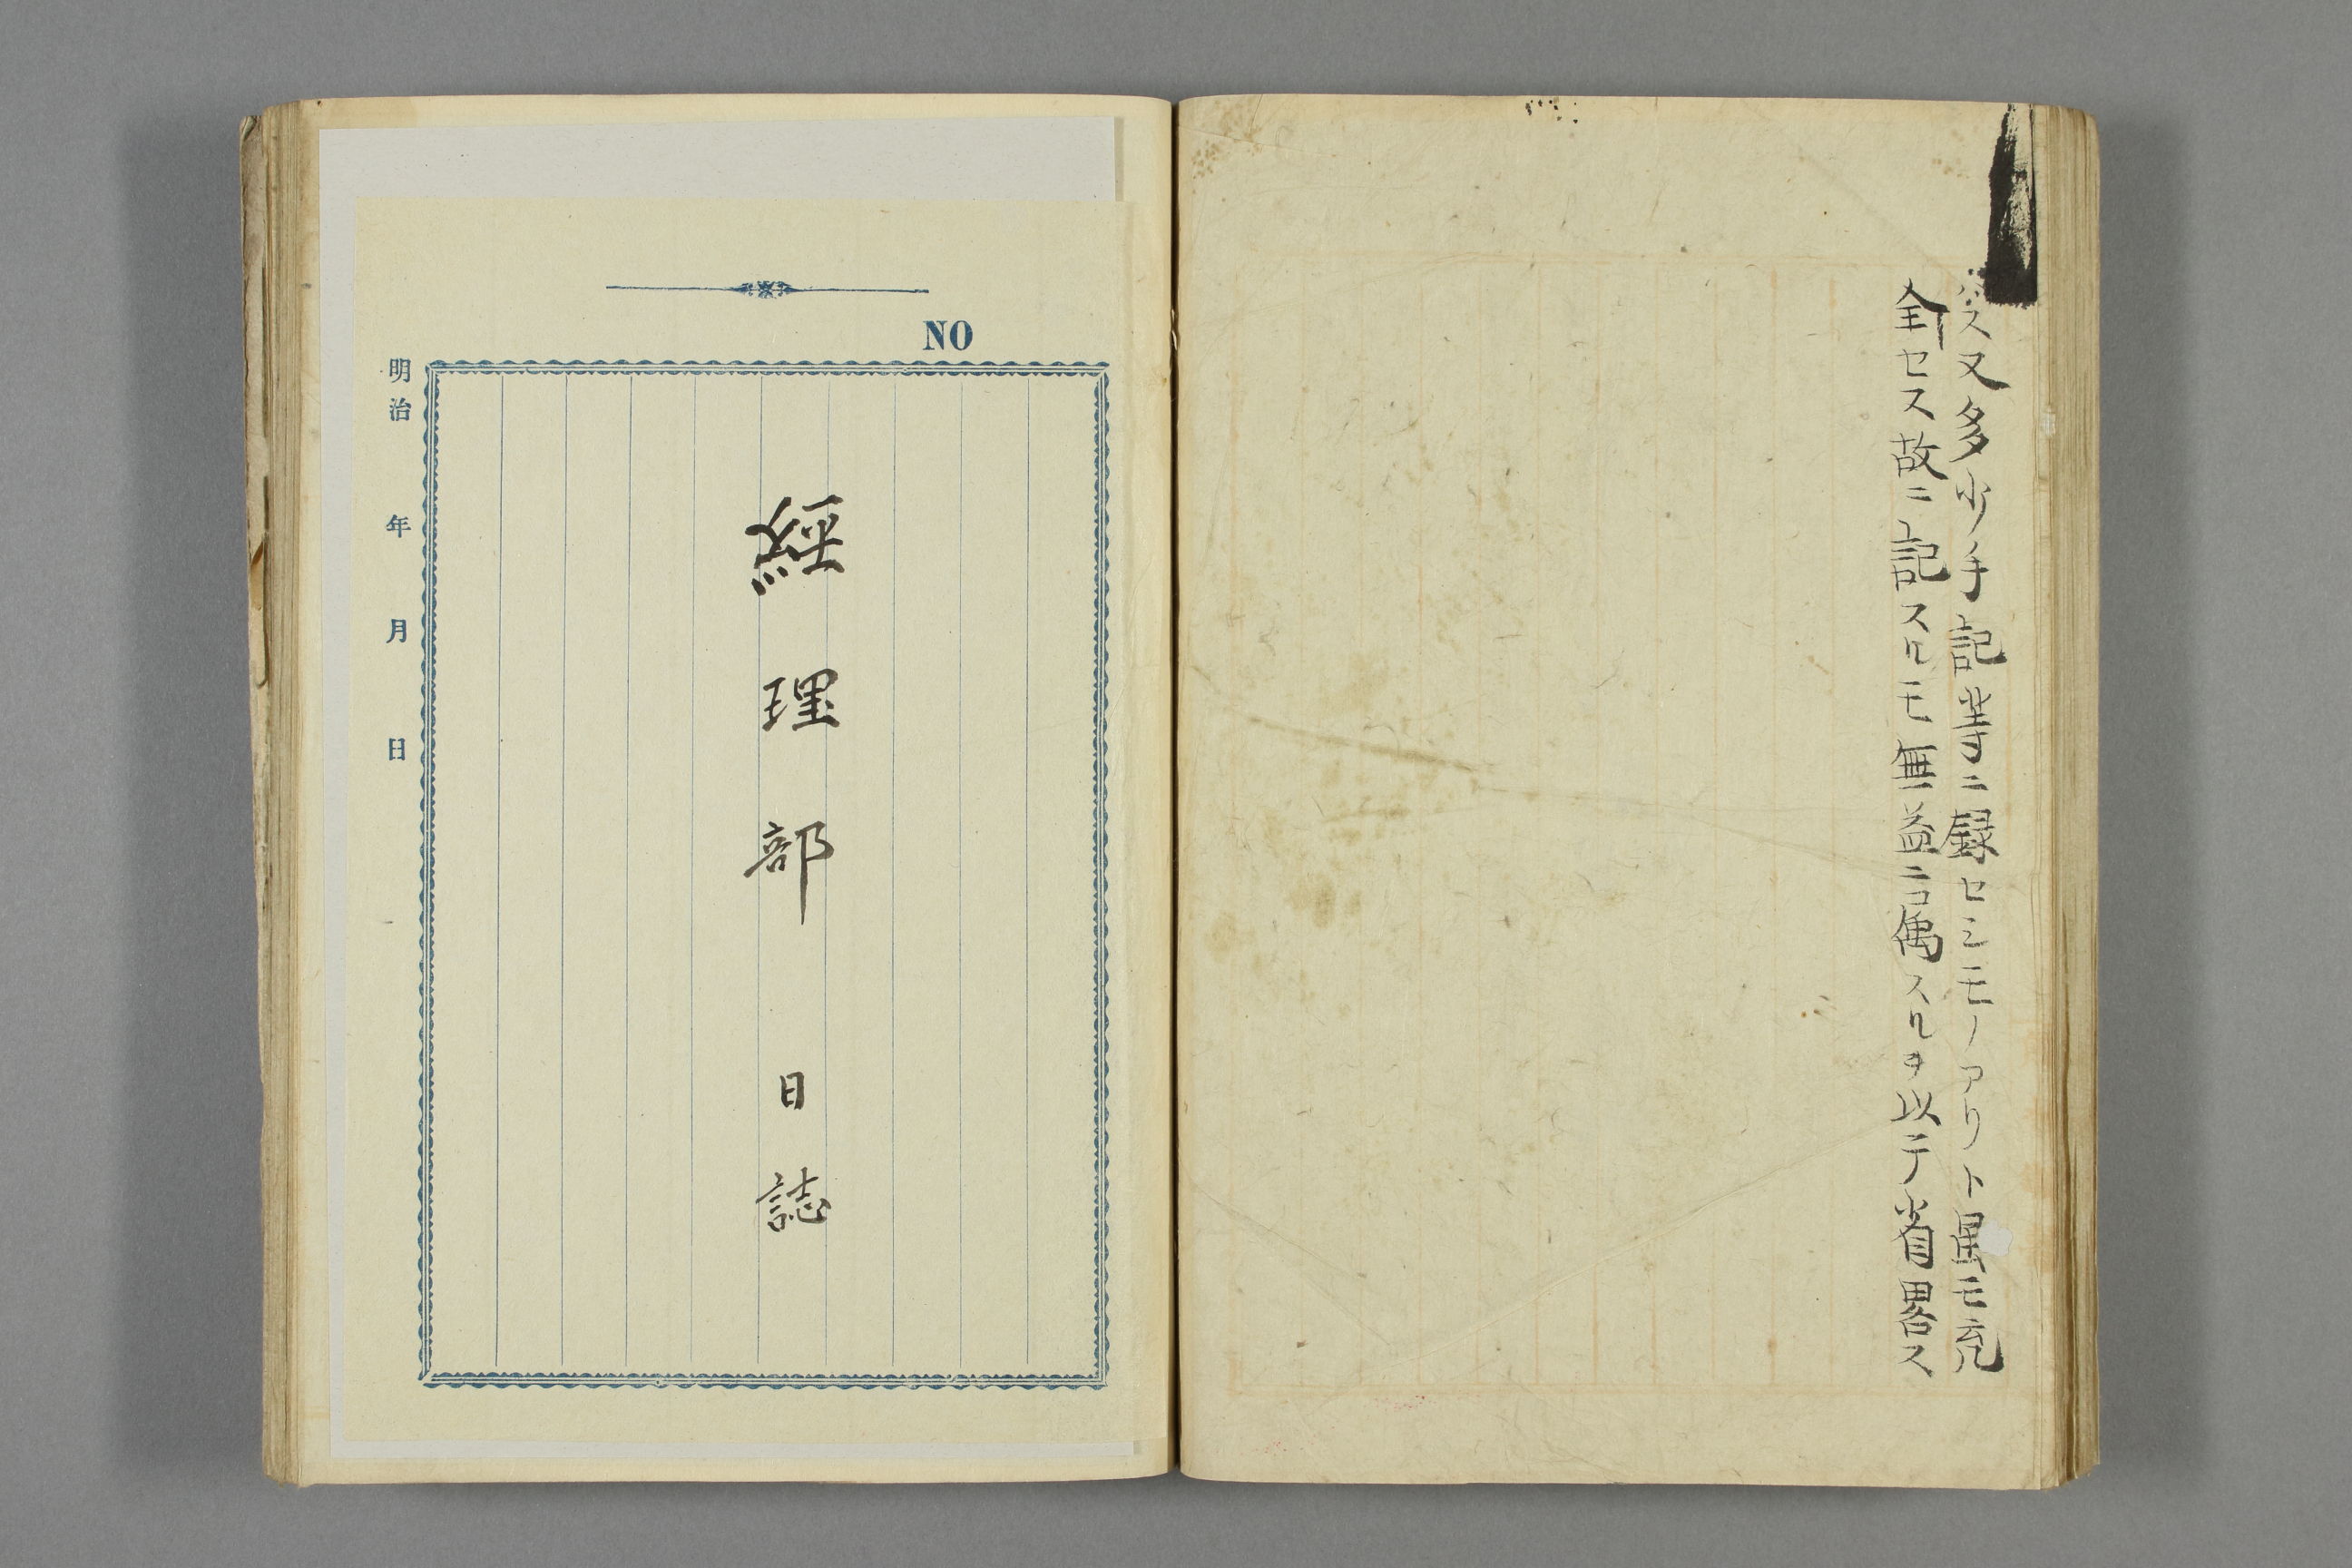 ス又多少手記等ニ録セシモノアリト虽モ完
全セス故ニ記スルモ無益ニ属スルヲ以テ省畧ス
NO
經理部 日誌
明治 年 月 日